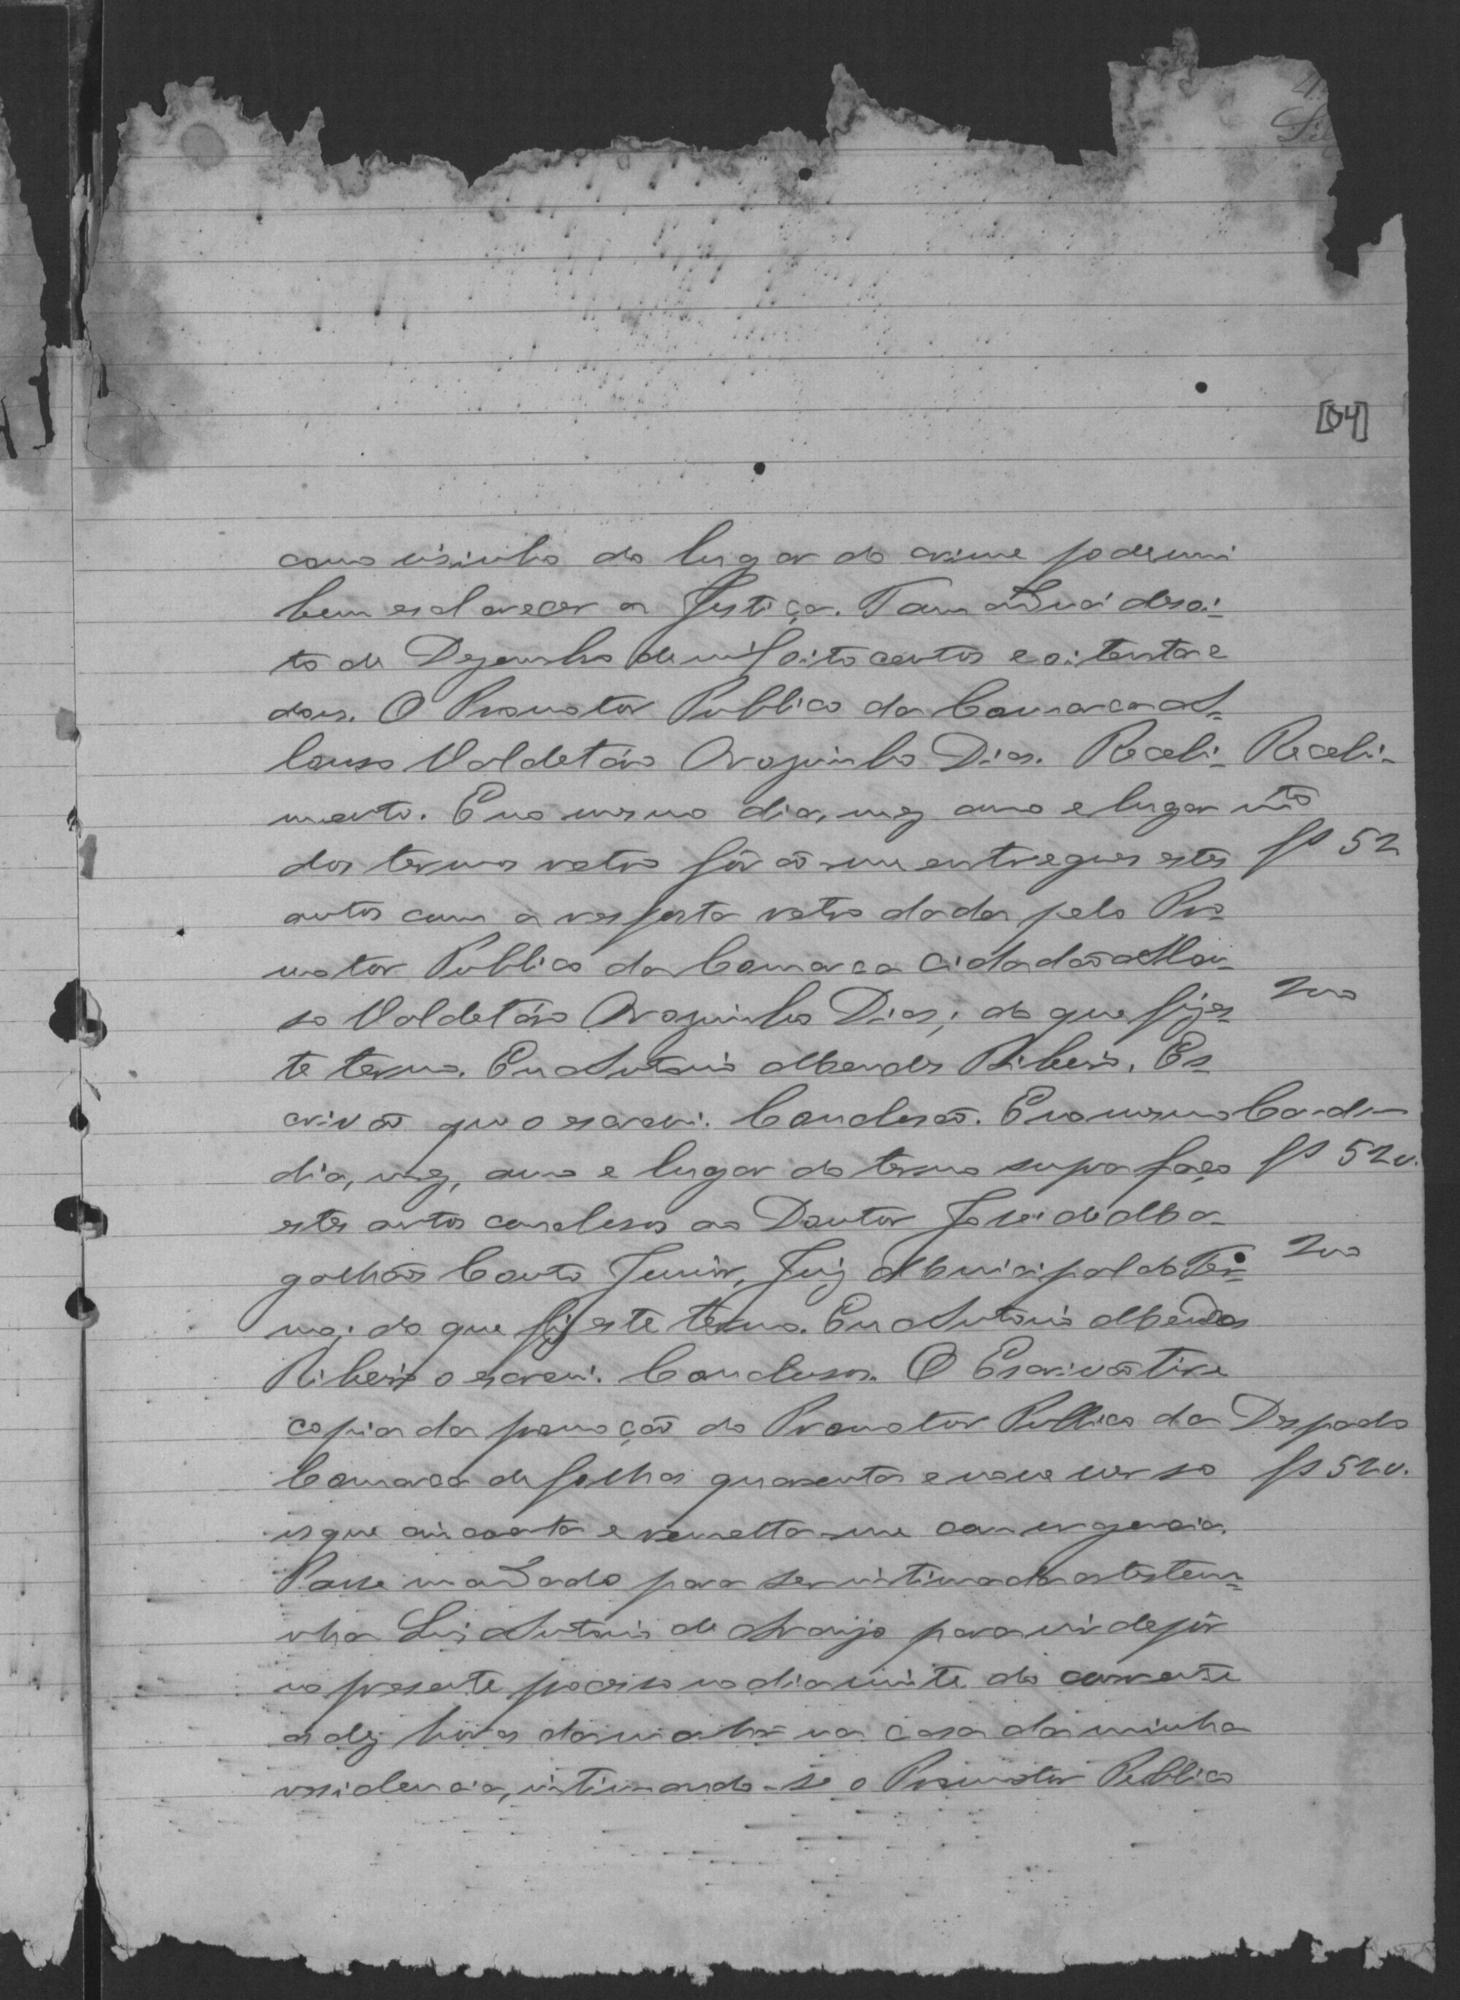 [04]
como visinho do lugar do crime poderiam
bem esclarecer a Justiça. Tamanduá desoi-
to de Dezembro de mil oitocentos e oitenta e
dous. O Promotor Publico da Comarca A-
lonso Valdetáro Dias. Recebi- Recebi-
mento. E no mesmo dia, mez anno e lugar mto
dos termos retro fôrão me entregues estes fs 52
autos com a resposta retro dada pelo Pro-
motor Publico da Comarca cidadão
so Valdetáro Dias; do que fiz es-
te termo. Eu Antonio Mendes Ribeiro, Es-
crivão que o escrevi. Conclusão. E no mesmo
dia, mez, anno e lugar do termo supra faço fs 52v.
estes autos conclusos ao Doutor José de Ma-
galhães Couto Junior, Juiz Municipal do Ter-
mo; do que fiz este termo. Eu Antonio Mendes
Ribeiro o escrevi. Conclusos. O Escrivão tire
copia da promoção do Promotor Publico da
Comarca de folhas quarenta e nove verso fs 52v.
usque cincoenta e remetta-me com urgencia.
Passe mandado para ser intimada a testemu-
nha Luiz Antonio de Araujo para vir depôr
no presente processo no dia vinte do corrente
as dez horas da manhã na casa da minha
residencia, intimando-se o Promotor Publico